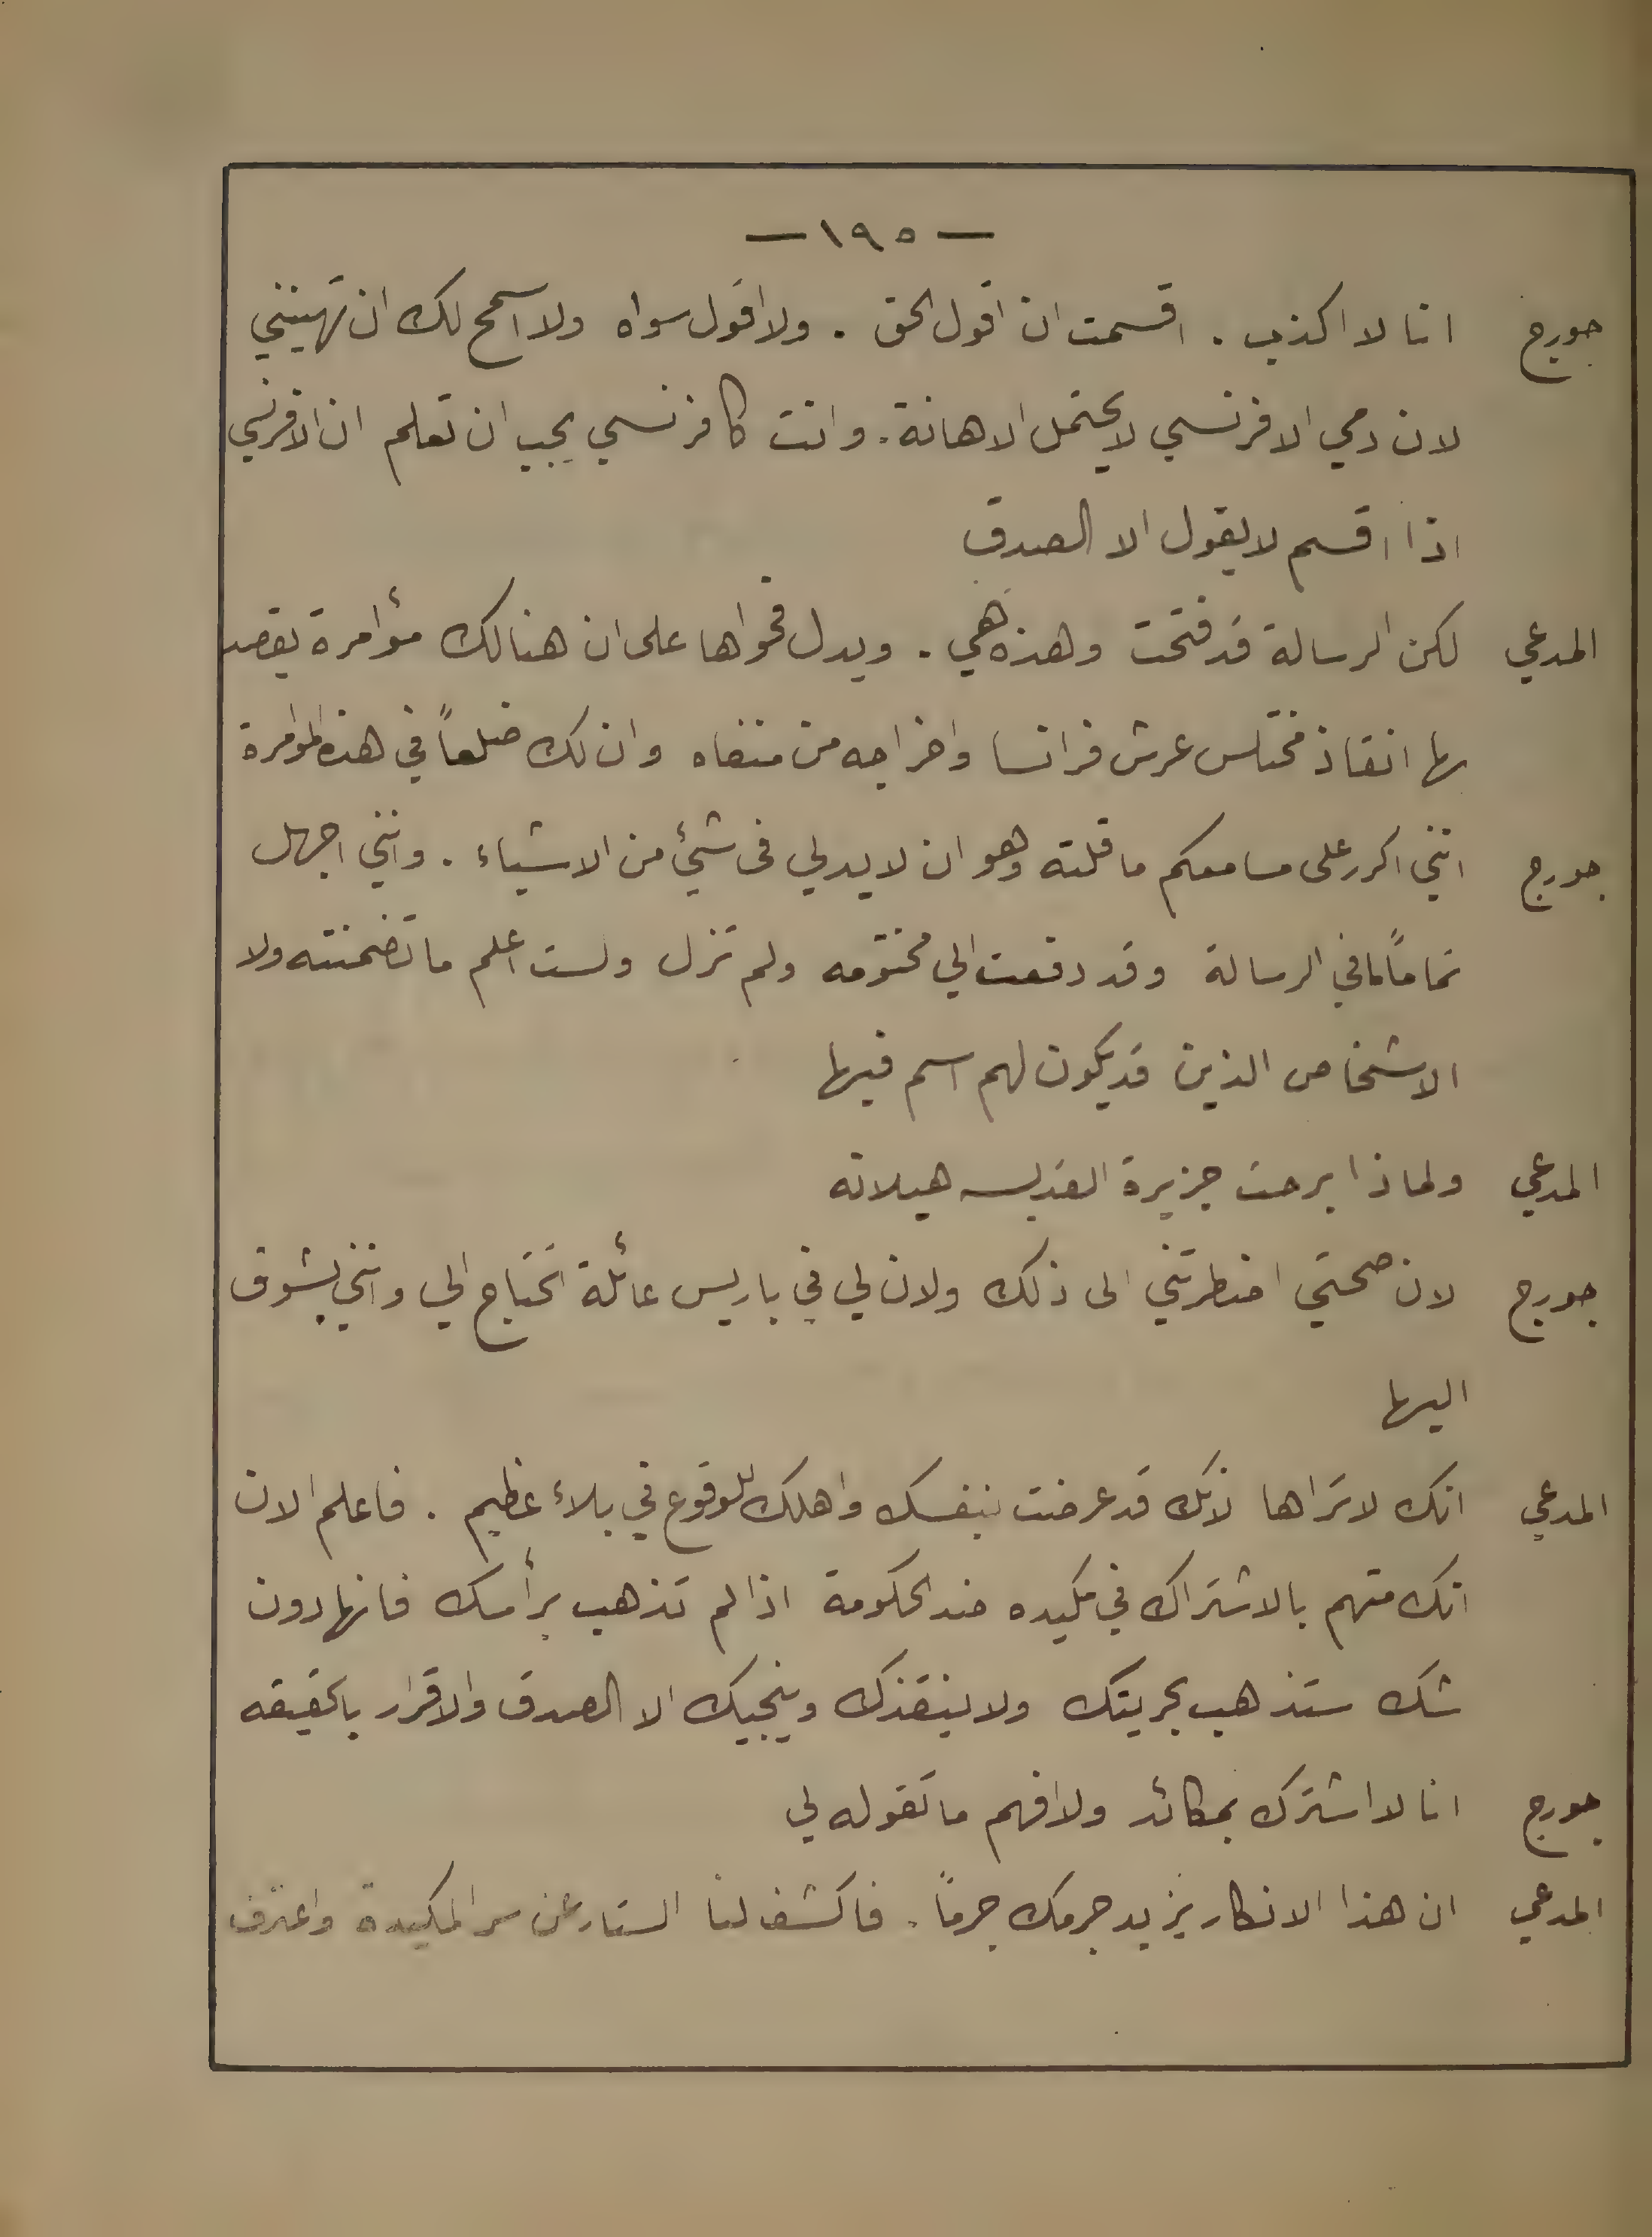 — ١٩٥ —
جورج انا لا اكذب . اقسمت ان اقول الحق . ولا اقول سواه ولا اسمح لك ان تهينني
لان دمي الافرنسي لا يحتمل الاهانة . وانت كافرنسي يجب ان تعلم ان الافرنسي
اذا اقسم لا يقول الا الصدق
المدعي لكن الرسالة قد فتحت وهذه هي . ويدل فحواها على ان هنالك مؤامرة يقصد
بها انقاذ مختلس عرش فرانسا واخراجه من منفاه وان لك ضلعاً في هذه المؤامرة
جورج انني اكرر على مسامعكم ما قلته وهو ان لا يد لي في شيئ من الاشياء . وانني اجهل
تماماً ما في الرسالة وقد دفعت الي مختومه ولم تزل ولست اعلم ما تضمنته ولا
الاشخاص الذين قد يكون لهم اسم فيها
المدعي ولماذا برحت جزيرة القديسه هيلانه
جورج لان صحتي اضطرتني الى ذلك ولان لي في باريس عائلة تحتاج الي وانني بشوق
اليها
المدعي انك لا تراها لانك قد عرضت بنفسك واهلك للوقوع في بلاء عظيم . فاعلم الان
انك متهم بالاشتراك في مكيده ضد الحكومة اذا لم تذهب برأسك فانها دون
شك ستذهب بحريتك ولا ينقذك وينجيك الا الصدق والاقرار بالحقيقه
جورج انا لا اشترك بمكائد ولا افهم ما تقوله لي
المدعي ان هذا الانكار يزيد جرمك جرماً . فاكشف لنا الستار عن سر المكيدة واعترف